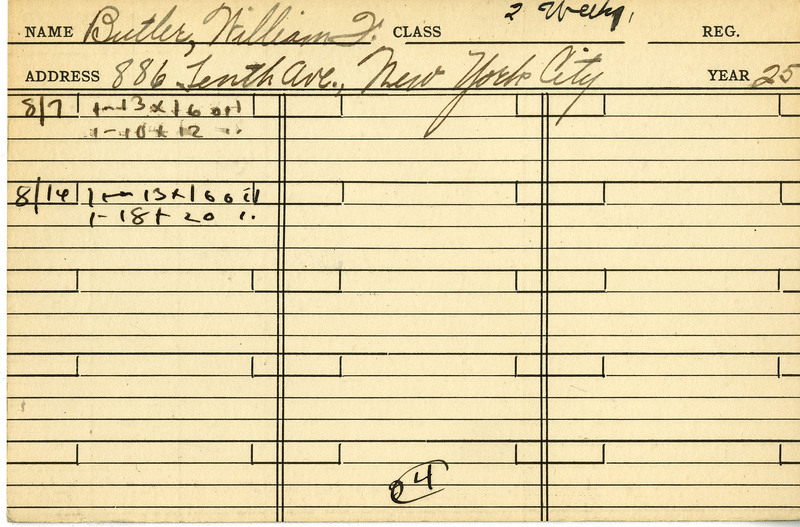 NAME Butler, William F. CLASS 2 Weeks, REG.
ADDRESS 886 Tenth Ave., New York City YEAR 25
8/7 1—13 x 16 oil
1—10 x 12 "
8/14 1—13 x 16 oil
1—18 x 20 "
04